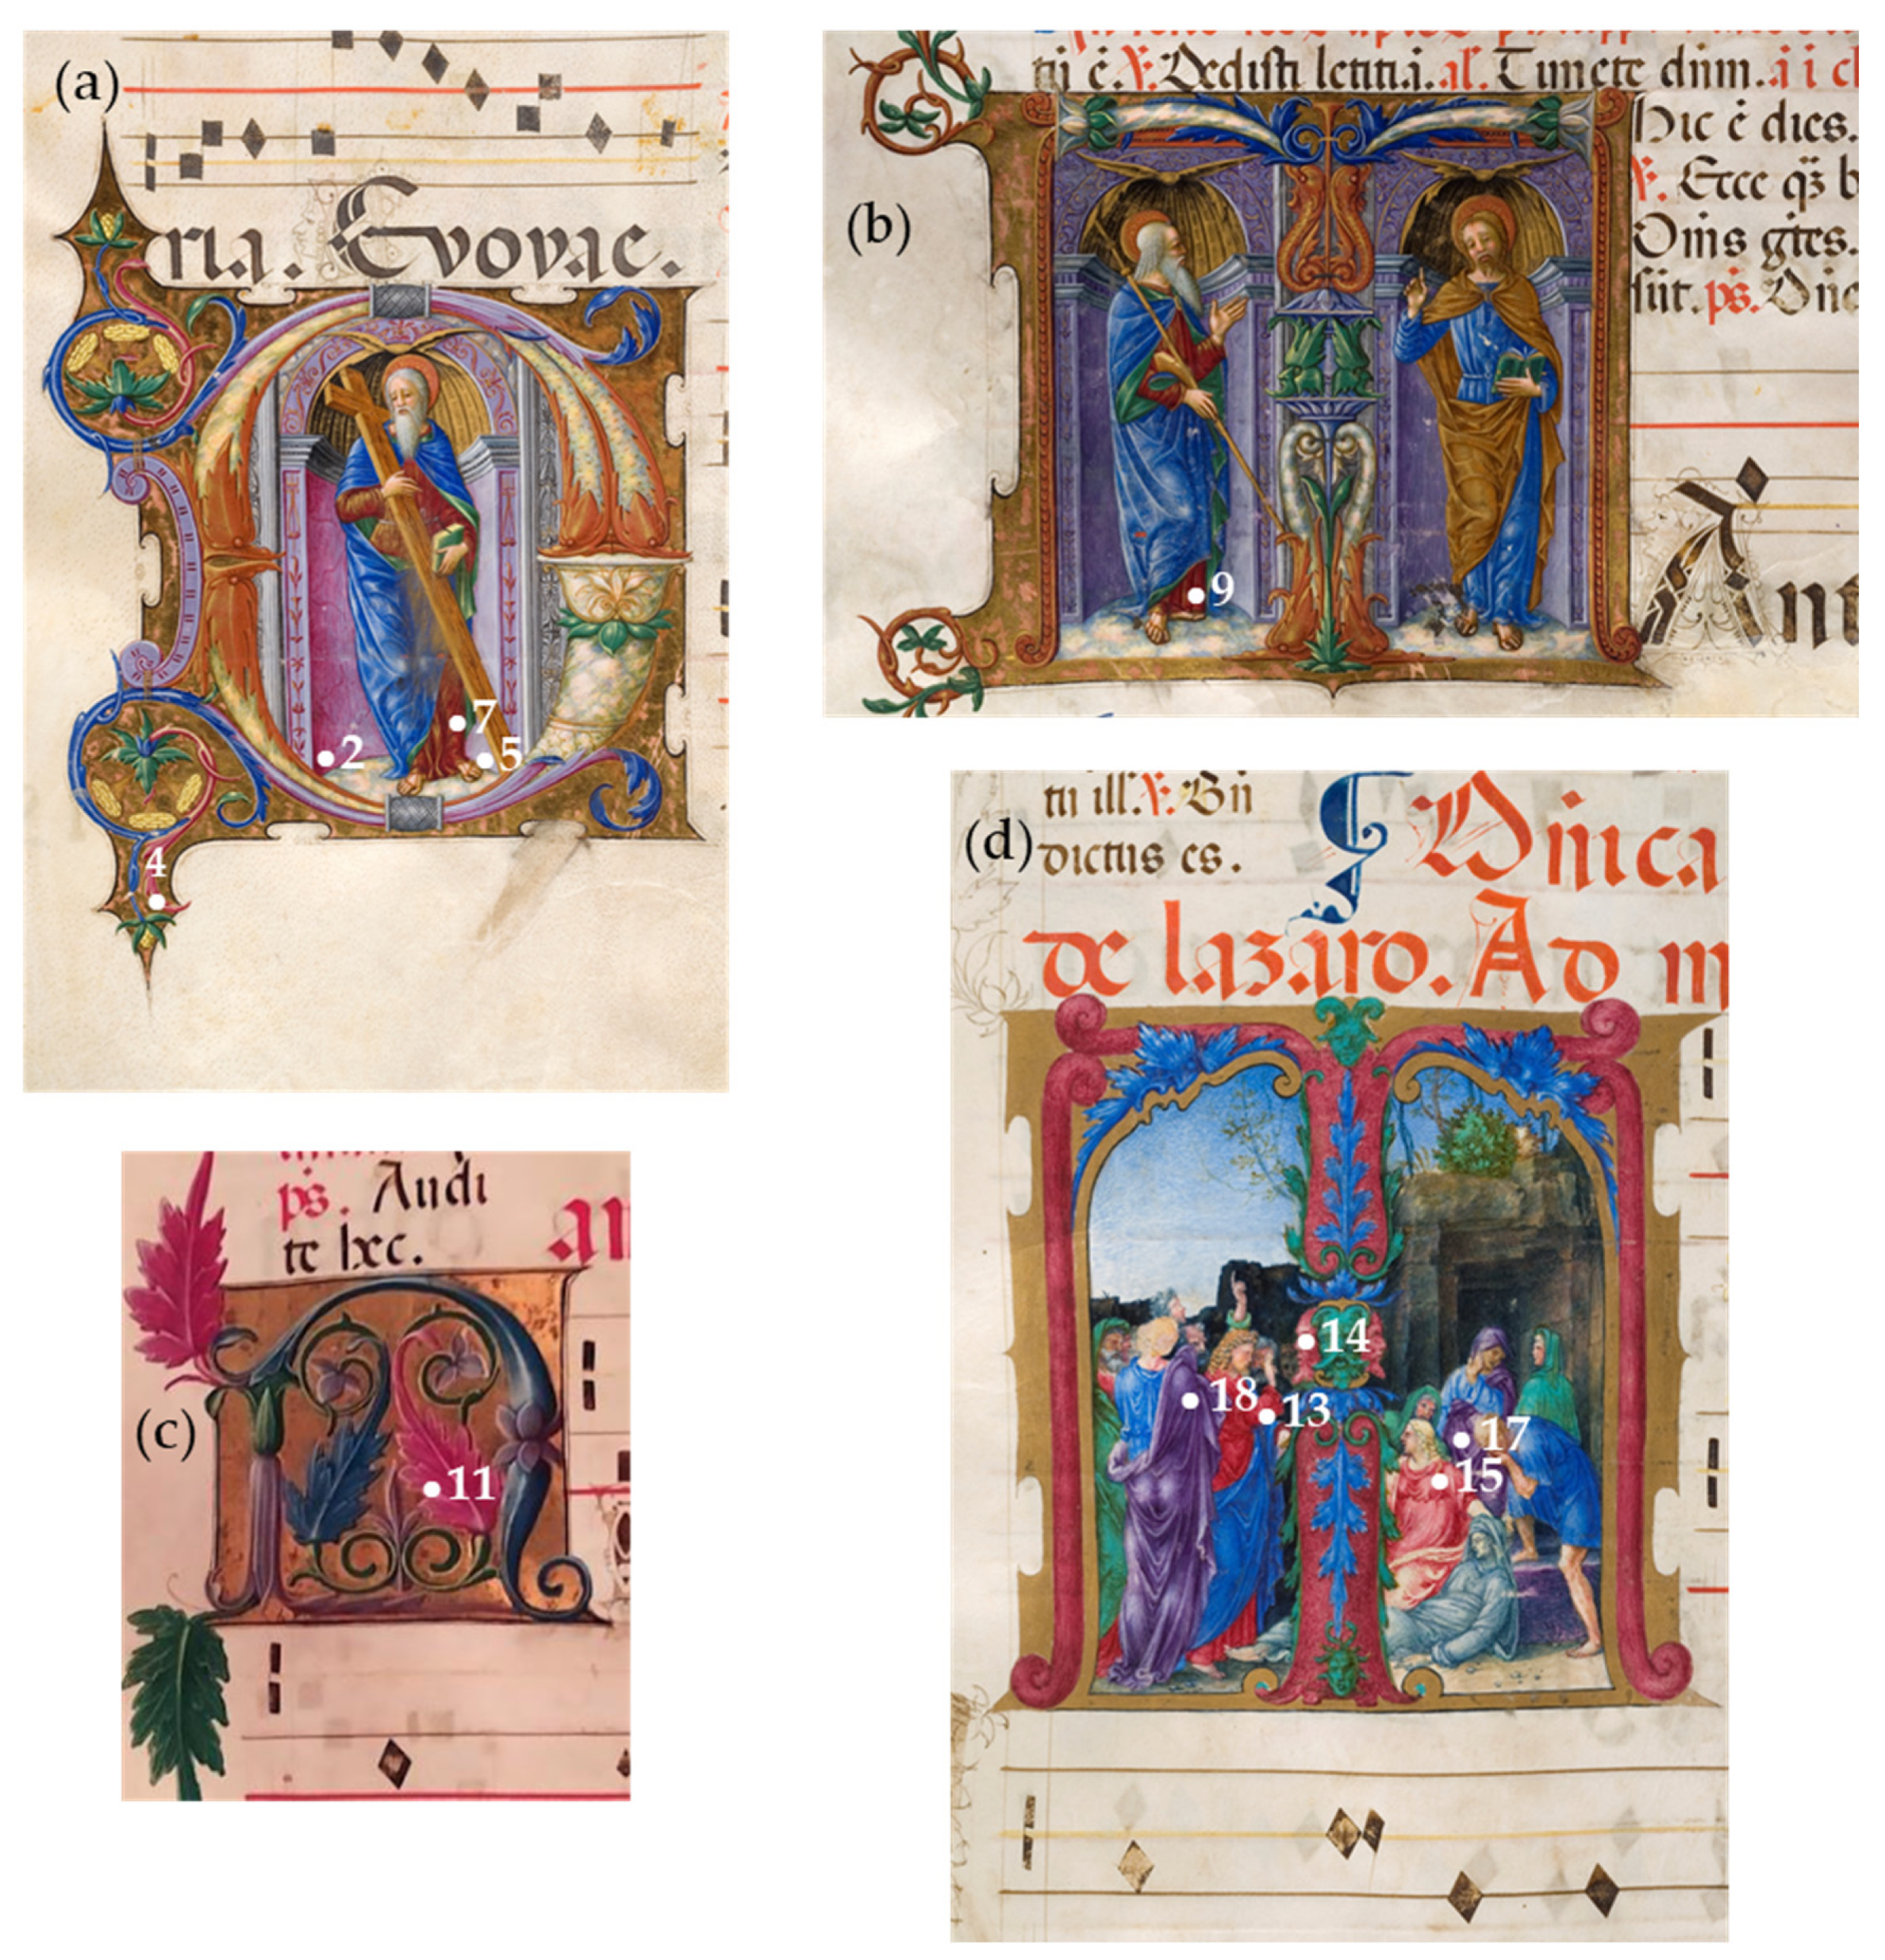 (a)
ria. Evovae.
2
7
5
4
(b)
tu ē. V. Dedisti letitiā. al'. Timete dnm. a i cl
Hic ē dies.
V. Ecce qʒ b
Oms gtes.
sūt. ps. Dñe
9
(c)
ps. Audi
te hec.
an
11
(d)
tu ill. V. Bñ
dictus es.
Dñica
de lazaro. Ad m
14
18
13
17
15